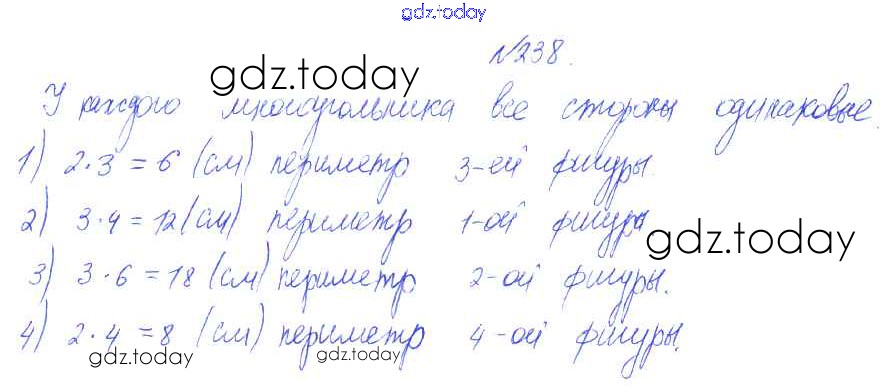 gdz.today
№238.
gdz.today
У каждого многоугольника все стороны одинаковые.
1) 2·3 = 6 (см) периметр 3-ей фигуры.
2) 3·4 = 12 (см) периметр 1-ой фигуры
gdz.today
3) 3·6 = 18 (см) периметр 2-ой фигуры.
4) 2·4 = 8 (см) периметр 4-ой фигуры.
gdz.today gdz.today